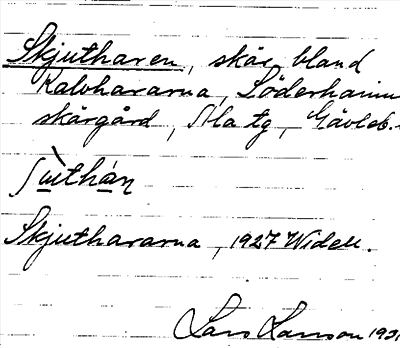 Skjutharen, skär bland
Kalvhararna, Söderhamns
skärgård, Ala tg, Gävleb.
Skjuthararna, 1927 Widell.
Lars Larsson 1931